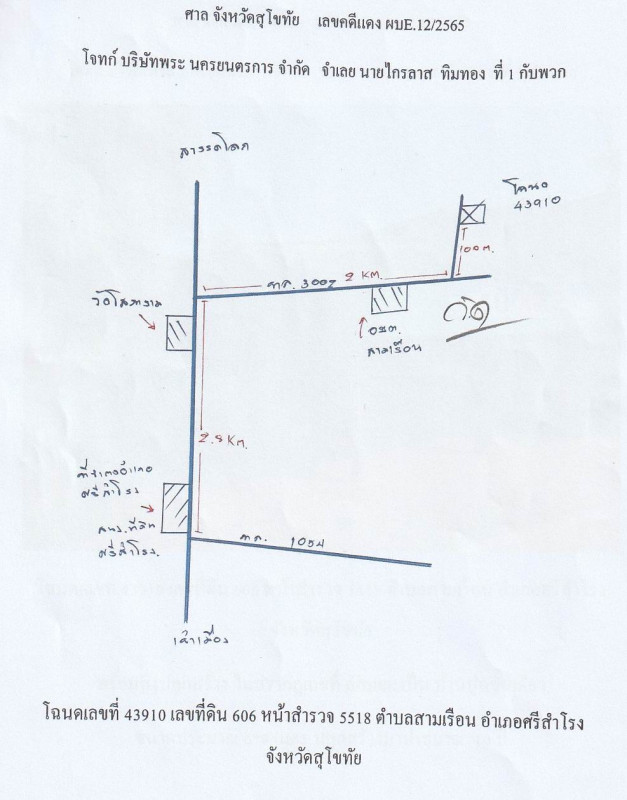 ศาล จังหวัดสุโขทัย เลขคดีแดง ผบE.12/2565
โจทก์ บริษัทพระ นครยนตรการ จำกัด จำเลย นายไกรลาส ทิมทอง ที่ 1 กับพวก
สวรรคโลก
โฉนด
43910
100 ม.
2 KM.
ทล. 3002
วัด
อบต.
สามเรือน
2.8 KM.
ที่ว่าการอำเภอ
ศรีสำโรง
สนง.ที่ดิน
ศรีสำโรง.
ทล. 1054
เข้าเมือง
โฉนดเลขที่ 43910 เลขที่ดิน 606 หน้าสำรวจ 5518 ตำบลสามเรือน อำเภอศรีสำโรง
จังหวัดสุโขทัย